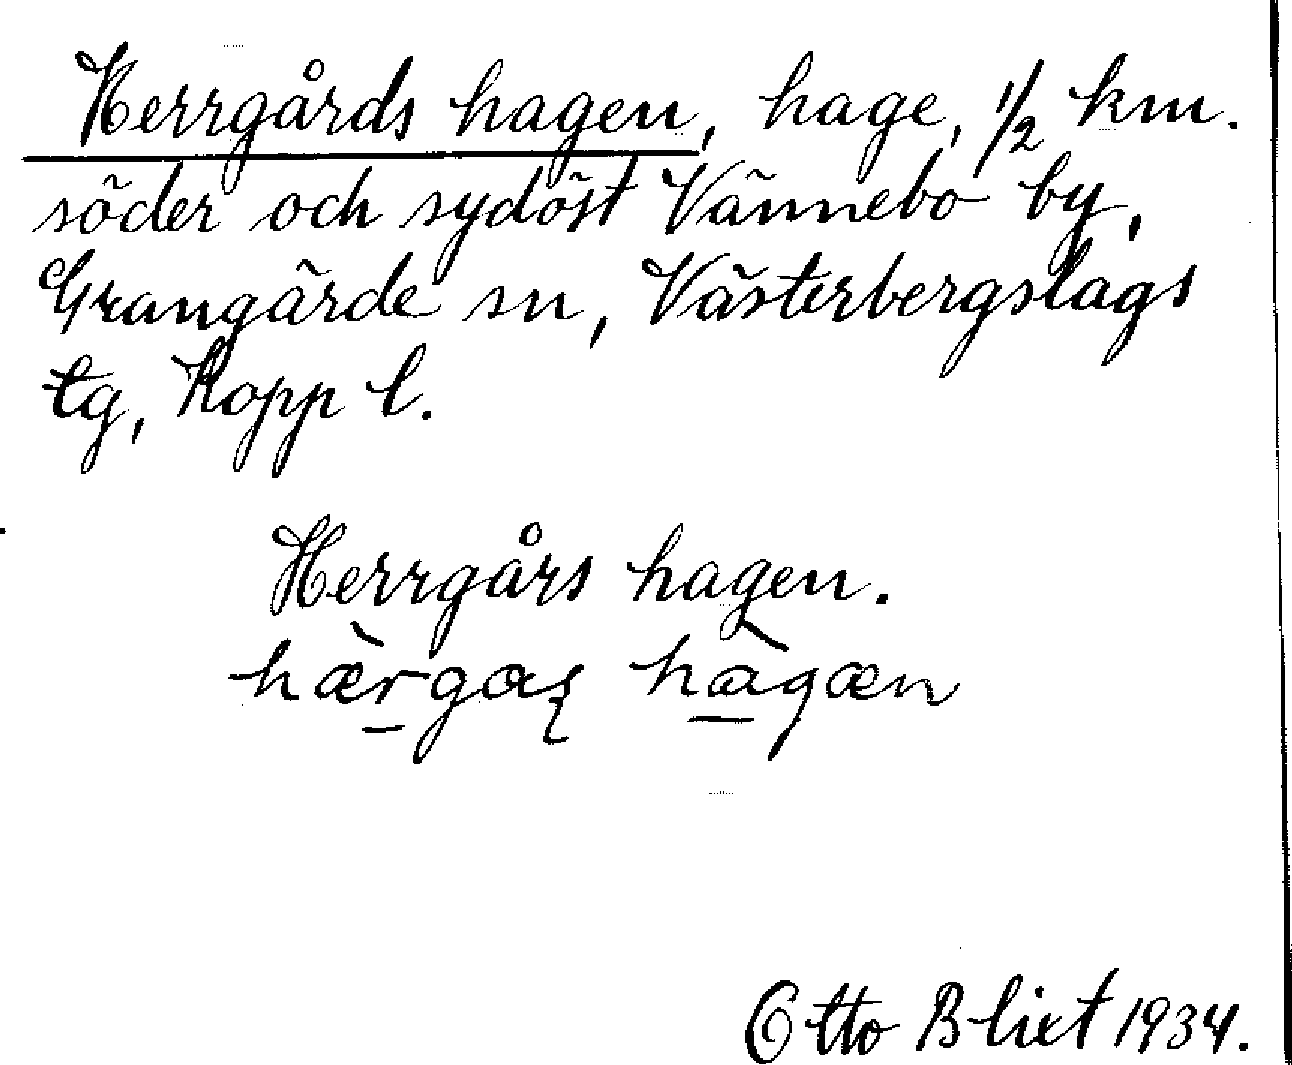 Herrgårds hagen, hage, 1/2 km.
söder och sydöst Vännebo by,
Grangärde sn, Västerbergslags
tg, Kopp l.
Herrgårs hagen.
Otto Blixt 1934.